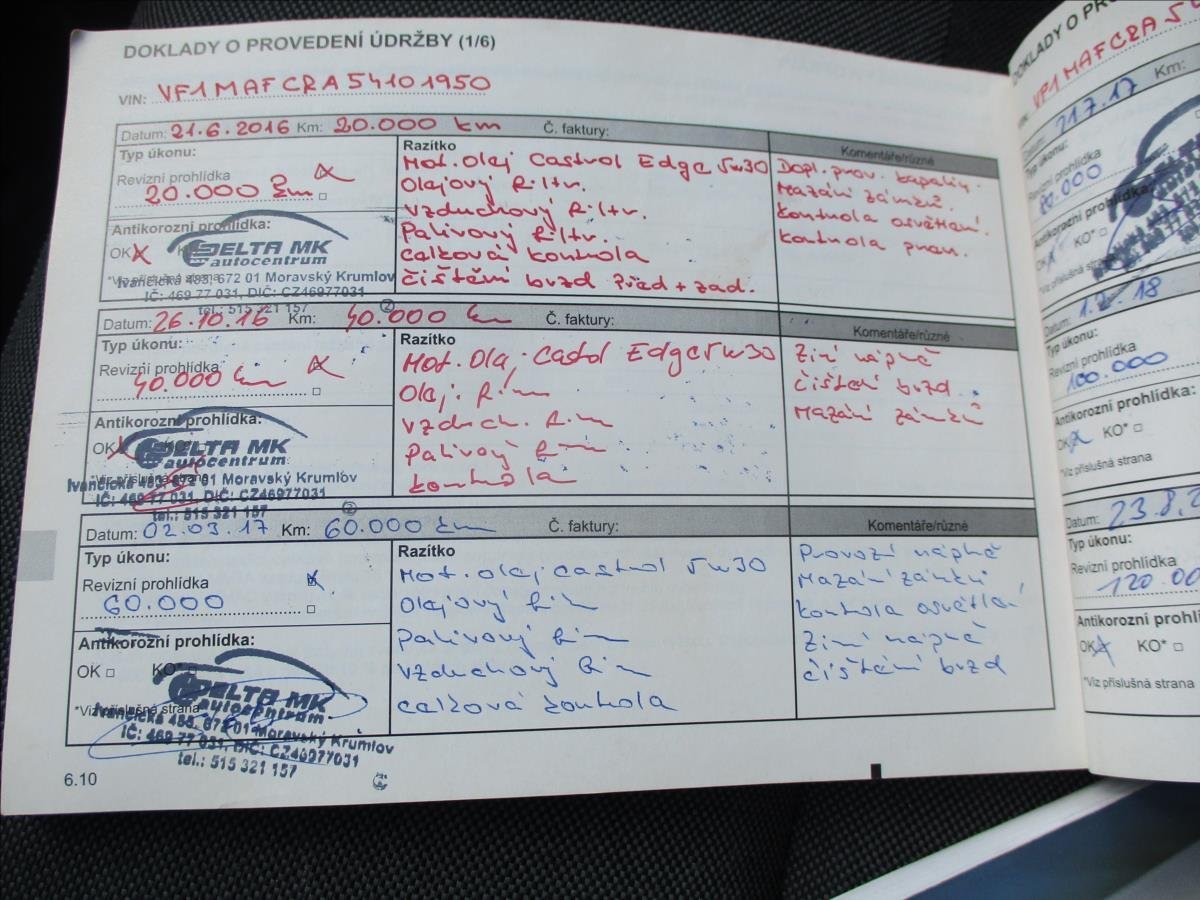 DOKLADY O PROVEDENÍ ÚDRŽBY (1/6)
VIN: VF1MAFCRA54101950
Datum: 21.6.2016 Km: 20.000 km Č. faktury:
Typ úkonu:
Revizní prohlídka
20.000 km
Antikorozní prohlídka:
OK
DELTA MK
autocentrum
Ivančická 485, 672 01 Moravský Krumlov
IČ: 469 77 031, DIČ: CZ46977031
tel.: 515 321 157
Razítko
Mot. olej Castrol Edge 5w30
Olejový filtr.
Vzduchový filtr.
Palivový filtr.
Celková kontrola
čištění brzd před + zad.
Komentáře/různé
Dopl. prov. kapalin.
Mazání zámků.
Kontrola osvětlaní.
Kontrola pneu.
Datum: 26.10.16 Km: 40.000 km Č. faktury:
Typ úkonu:
Revizní prohlídka
40.000 km
Antikorozní prohlídka:
OK
DELTA MK
autocentrum
Ivančická 485, 672 01 Moravský Krumlov
IČ: 469 77 031, DIČ: CZ46977031
tel.: 515 321 157
Razítko
Mot. Olej Edge 5w30
Olej.
Vzduch.
Palivový
kontrola
Komentáře/různé
Zimí náplně
čištění brzd
Mazání zámků
Datum: 02.03.17 Km: 60.000 km Č. faktury:
Typ úkonu:
Revizní prohlídka
60.000
Antikorozní prohlídka:
OK KO*
*Viz příslušná strana
DELTA MK
autocentrum
Ivančická 485, 672 01 Moravský Krumlov
IČ: 469 77 031, DIČ: CZ46977031
tel.: 515 321 157
Razítko
Mot. olej castrol 5w30
Olejový
Palivový
Vzduchový
celková kontrola
Komentáře/různé
Provozí náplně
Mazání zámků
Kontrola osvětlaní
Zimí náplně
čištění brzd
6.10
DOKLADY O
VF1MAFCRA5
21.7.17 Km:
Typ úkonu:
Revizní prohlídka
80.000
Antikorozní
KO*
Datum: 1.2.18
Typ úkonu:
Revizní prohlídka
100.000
Antikorozní prohlídka:
OK KO*
*Viz příslušná strana
Datum: 23.8.
Typ úkonu:
Revizní prohlídka
120.00
Antikorozní prohlí
OK KO*
*Viz příslušná strana